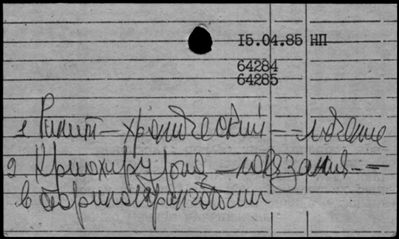 15.04.85 НП
64284
64285
1. Ринит — хронический — лечение
2. Криохирургия — показания —
в оториноларингологии